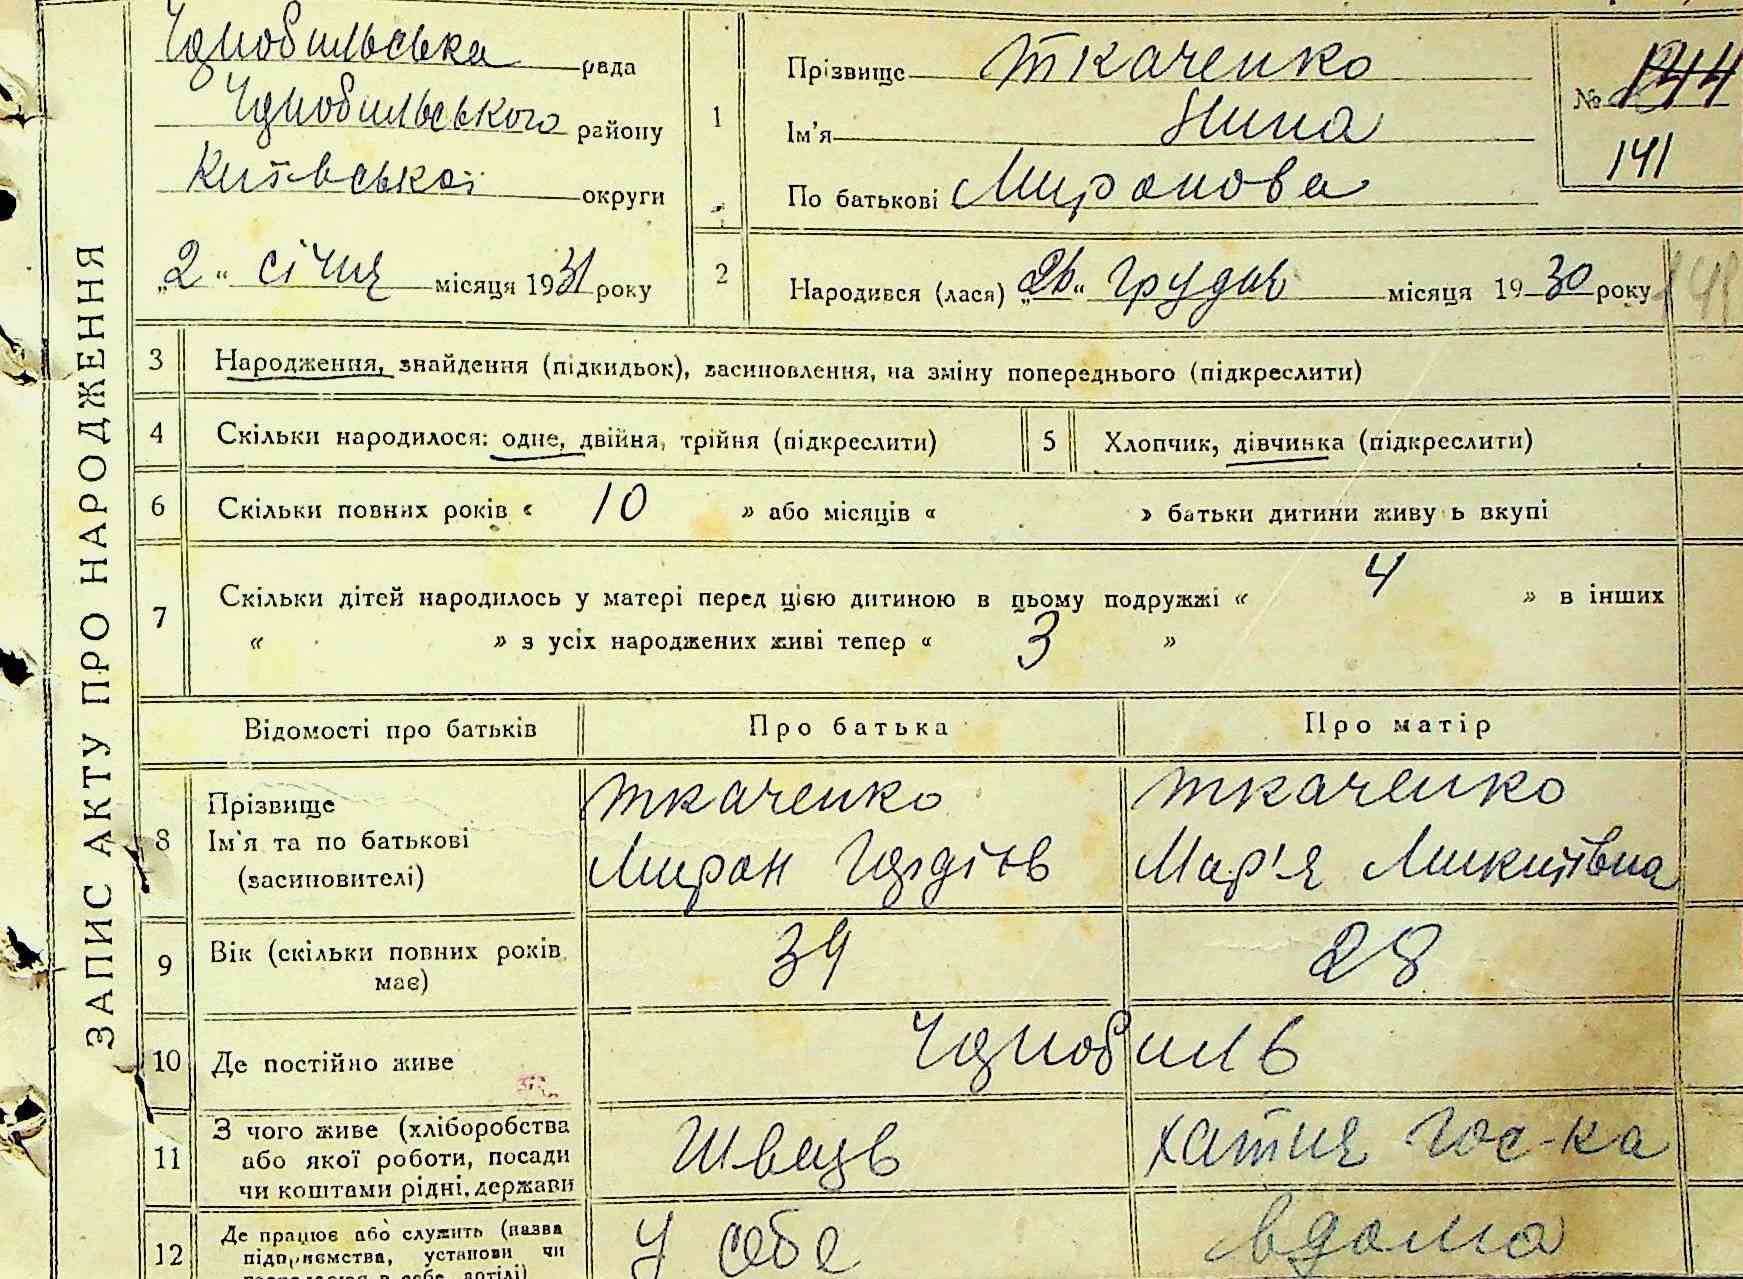 ЗАПИС АКТУ ПРО НАРОДЖЕННЯ
Чорнобильська рада
Чорнобильського району
Київської округи
„2“ січня місяця 1931 року
1
Прізвище Ткаченко
Ім'я Нина
По батькові Миронова
№ 144
141
2
Народився (лася) „26“ грудня місяця 1930 року
3 Народження, знайдення (підкидьок), засиновлення, на зміну попереднього (підкреслити)
4 Скільки народилося: одне, двійня, трійня (підкреслити)
5 Хлопчик, дівчинка (підкреслити)
6 Скільки повних років « 10 » або місяців « » батьки дитини живу ь вкупі
7 Скільки дітей народилось у матері перед цією дитиною в цьому подружжі « 4 » в інших
« » з усіх народжених живі тепер « 3 »
Відомості про батьків Про батька Про матір
8 Прізвище
Ім'я та по батькові
(засиновителі)
Ткаченко
Мирон Гордіїв
Ткаченко
Мар'я Микитівна
9 Вік (скільки повних років
має)
39
28
10 Де постійно живе Чорнобиль
11 З чого живе (хліборобства
або якої роботи, посади
чи коштами рідні, держави
Швець
хатня гос-ка
12 Де працює або служить (назва
підприємства, установи чи
в себе, артілі)
У себе
вдома